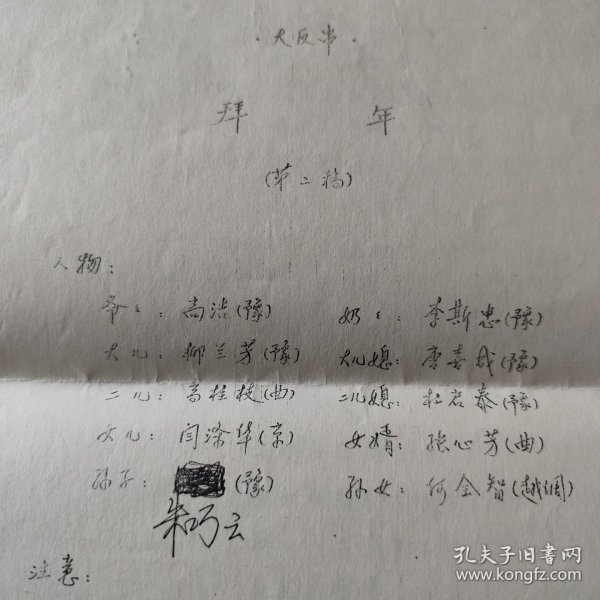 ·大反串·
拜 年
(第二稿)
人物：
爷々：高洁(豫) 奶々：李斯忠(豫)
大儿：柳兰芳(豫) 大儿媳：唐喜成(豫)
二儿：高桂枝(曲) 二儿媳：杜启泰(豫)
女儿：闫涤华(京) 女婿：张心芳(曲)
孙子：(豫) 孙女：何全智(越调)
朱巧云
注意：
孔夫子旧书网
www.kongfz.com